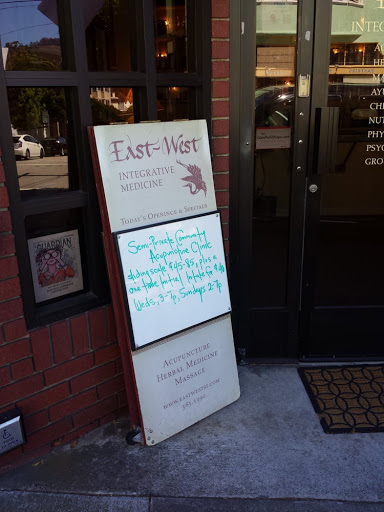 East-West
INTEGRATIVE
MEDICINE
TODAY'S OPENINGS & SPECIALS
Semi-Private Community
Acupuncture Clinic
sliding scale $45-85, plus a
one time Initial Intake fee $
Weds, 3-7p, Sundays 2-7p
ACUPUNCTURE
HERBAL MEDICINE
MASSAGE
GUARDIAN
INTE
A
HER
M
AYU
CHE
NUT
PHY
PSYC
GRO